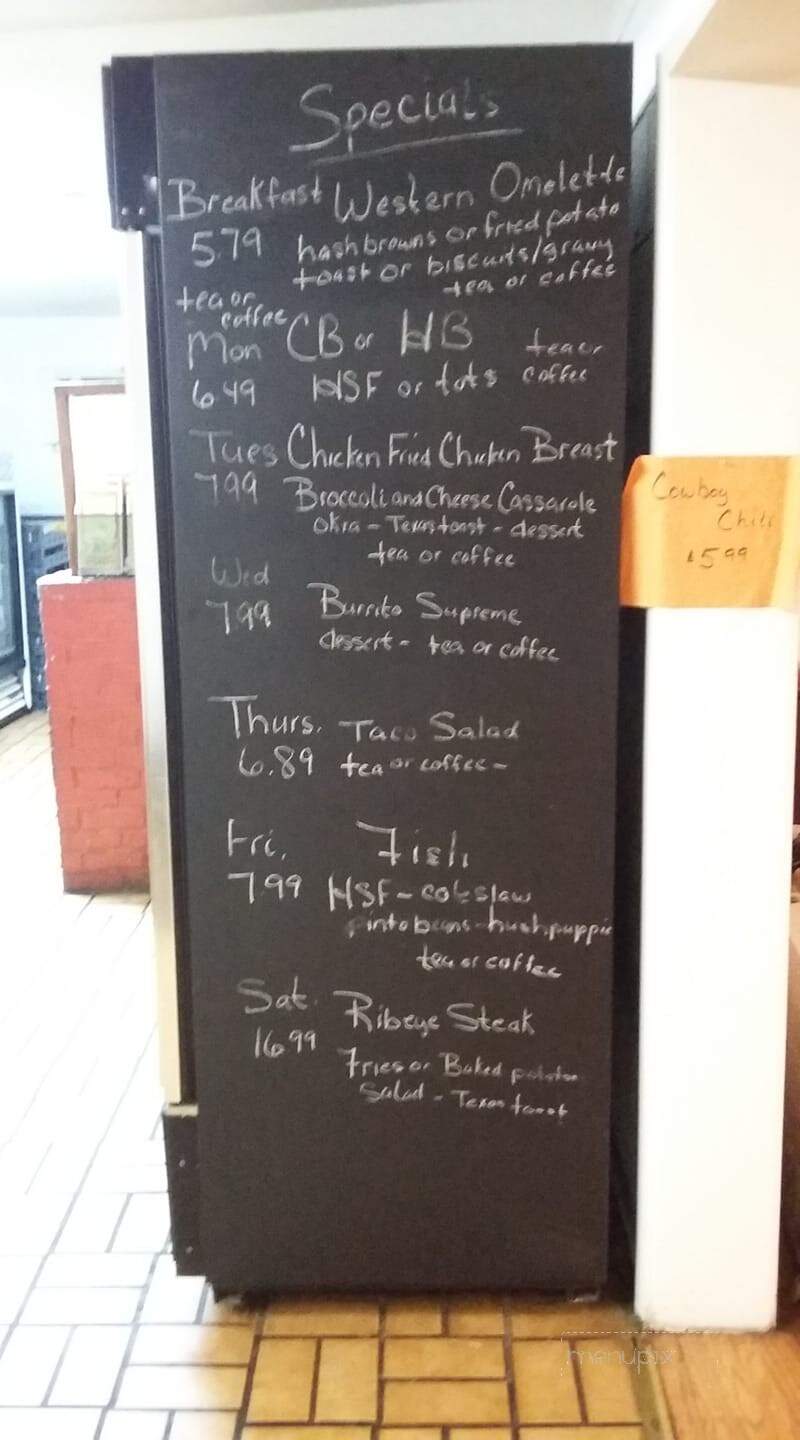 Specials
Breakfast Western Omelette
5.79 hashbrowns or fried potato
toast or biscuits/gravy
tea or coffee
tea or
coffee
Mon CB or HB tea or
6.49 HSF or tots coffee
Tues Chicken Fried Chicken Breast
7.99 Broccoli and Cheese Cassarole
Okra - Texas toast - dessert
tea or coffee
Wed
7.99 Burrito Supreme
dessert - tea or coffee
Thurs. Taco Salad
6.89 tea or coffee -
Fri. Fish
7.99 HSF - coleslaw
pinto beans - hushpuppie
tea or coffee
Sat. Ribeye Steak
16.99
Fries or Baked potatoe
Salad - Texas toast
Cowboy
Chili
$5.99
menupix